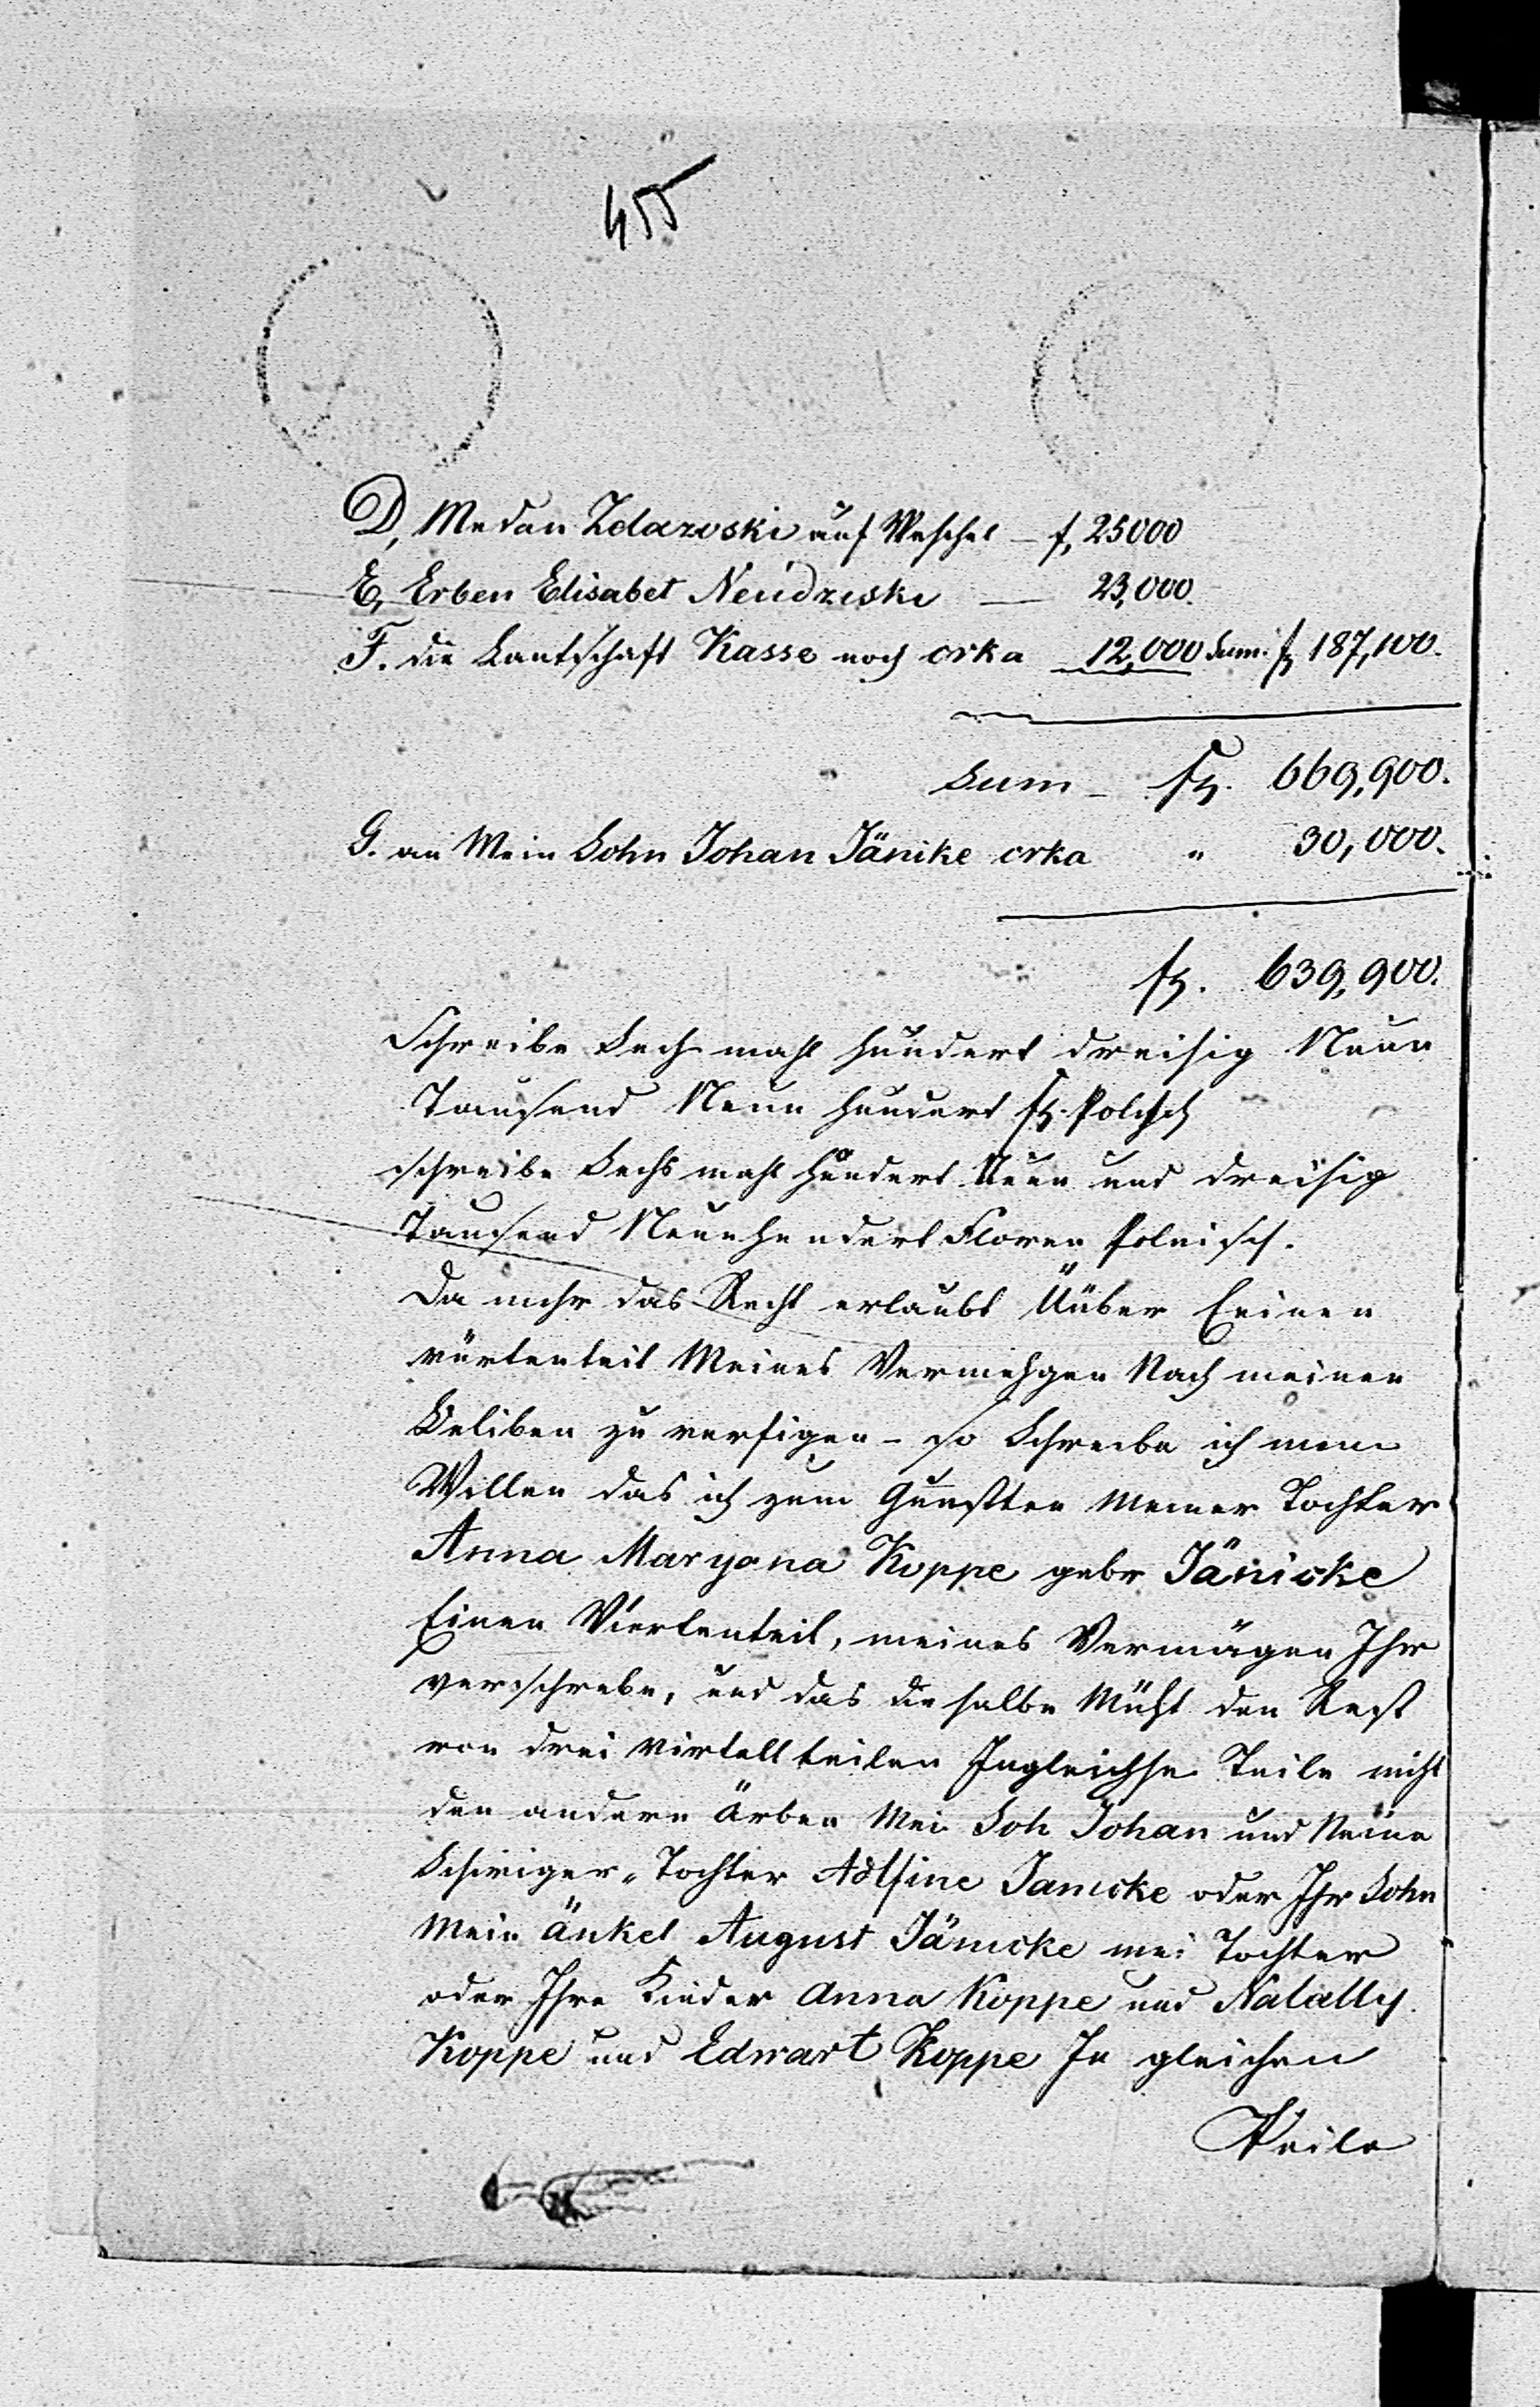 455
D, Medan Zdaroski auf Weschel — f, 25000
E, Erben Elisabet Neudzeski — 23,000.
F. die Lantschaft Kasse noch crka 12,000 Sum: f 187,100.
Sum — fl. 669,900.
G. an Mein Sohn Johan Jänike crka " 30,000.
fl. 639,900.
Schreibe Sech mahl Hundert dreisig Neun
Tausend Neun Hundert fl. Polisch
schreibe Sechs mahl Hundert Neun und dreisig
Tausend Neunhundert Floren Polnisch.
Da mihr das Recht erlaubt Üüber Eeinen
virtenteil Meines Vermehgen Nach meinen
Beliben zu verfigen – so Schreibe ich mein
Willen das ich zum Gunstten meiner Tochter
Anna Maryana Koppe gebr Jänicke
Einen Viertenteil, meines Vermägen Ihr
verschrebe, und das die selbe Müht den Rest
von drei virtell teilen Ingleichse Teile miht
den andern Ärben Mei Soh Johan und Meine
Schwiger-Tochter Adlfine Janicke oder Ihr Sohn
Mein änkel August Jänicke mei Tochter
oder Ihre Kinder Anna Koppe und Natally
Koppe und Edwart Koppe In gleichen
Theile